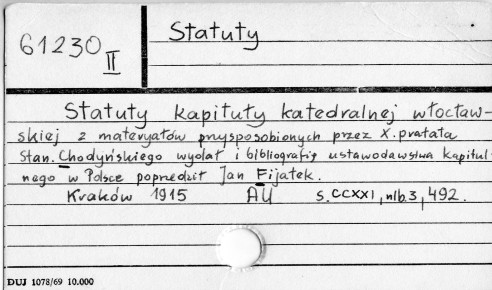 61230
II
Statuty
Statuty kapituły katedralnej włocław-
skiej z materyałów przysposobionych przez X. prałata
Stan. Chodyńskiego wydał i bibliografią ustawodawstwa kapitul-
nego w Polsce poprzedził Jan Fijałek.
Kraków 1915 AU s. CCXXI, nlb. 3, 492.
DUJ 1078/69 10.000